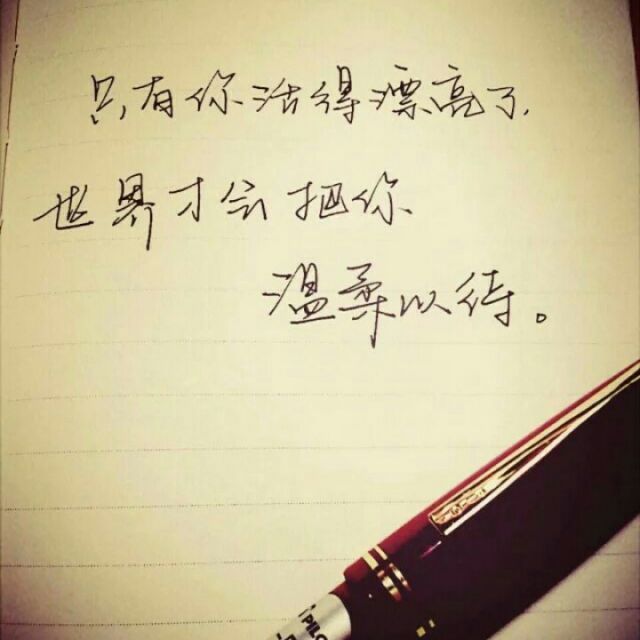 只有你活得漂亮了,
世界才会把你
温柔以待。
PILO